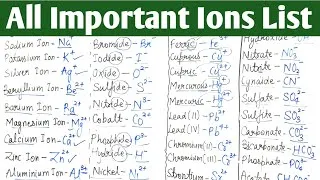 All Important Ions List
Sodium Ion - Na⁺
Potassium Ion - K⁺
Silver Ion - Ag⁺
Beryllium Ion - Be²⁺
Barium Ion - Ba²⁺
Magnesium Ion - Mg²⁺
Calcium Ion - Ca²⁺
Zinc Ion - Zn²⁺
Aluminium Ion - Al³⁺
Bromide - Br⁻
Iodide - I⁻
Oxide - O²⁻
Sulfide - S²⁻
Nitride - N³⁻
Cobalt - CO²⁺
Phosphide - P³⁻
Hydride - H⁻
Nickel - Ni²⁺
Ferric - Fe³⁺
Cuprous - Cu⁺
Cupric - Cu²⁺
Mercurous - Hg⁺
Mercuric - Hg²⁺
Lead(II) - Pb²⁺
Lead(IV) - Pb⁴⁺
Chromium(II) - Cr²⁺
Chromium(III) - Cr³⁺
Strontium - Sr²⁺
Hydroxide - OH⁻
Nitrate - NO₃⁻
Nitrite - NO₂⁻
Cynaide - CN⁻
Sulfate - SO₄²⁻
Sulfite - SO₃²⁻
Carbonate - CO₃²⁻
Bicarbonate - HCO₃⁻
Phosphate - PO₄³⁻
Acetate - CH₃